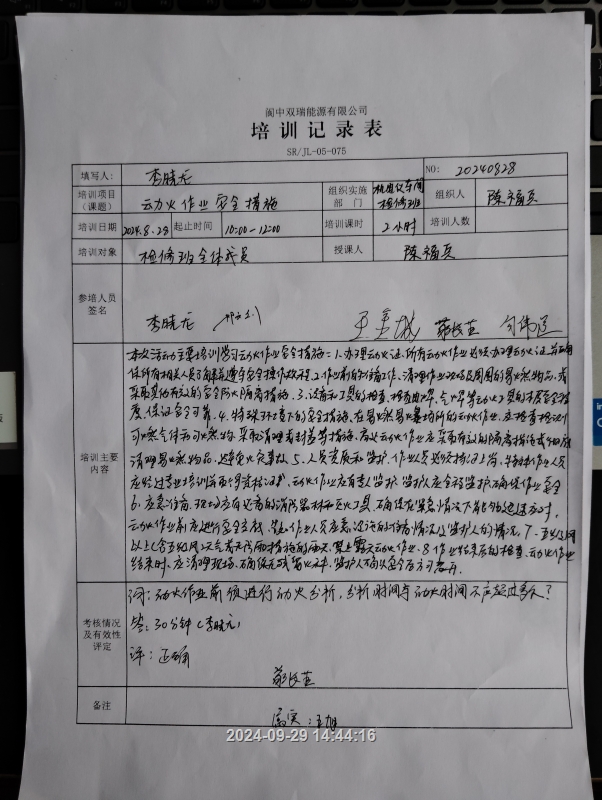 阆中双瑞能源有限公司
培训记录表
SR/JL-05-075
填写人: 李晓龙 NO: 20240828
培训项目（课题） 动火作业安全措施 组织实施部门 机电仪车间检修班 组织人 陈福兵
培训日期 2024.8.28 起止时间 10:00-12:00 培训课时 2小时 培训人数
培训对象 检修班全体成员 授课人 陈福兵
参培人员签名 李晓龙
培训主要内容
本次活动主要培训学习动火作业安全措施：1.办理动火证，所有动火作业必须办理动火证，并确
保所有相关人员了解并遵守安全操作规程。2.作业前的准备工作，清理作业现场及周围的易燃物品，或
采取其他有效的安全防火隔离措施。3.设备和工具的检查，检查电焊、气焊等动火工具的本质安全程
度，保证安全可靠。4.特殊环境下的安全措施，在易燃易爆场所的动火作业，应检查检测
可燃气体和可燃物，采取清理或封盖等措施，高处动火作业应采取有效的隔离措施或彻底
清理易燃物品，避免火灾事故。5.人员资质和监护，作业人员必须持证上岗，特种作业人员
应经过专业培训并取得资格证，动火作业应有专人监护，监护人应全程监护，确保作业安全
6.应急准备，现场应有必需的消防器材和灭火工具，确保在紧急情况下能够迅速应对，
动火作业前应进行安全交底，作业人员应急设施的准备情况及监护人的情况。7.五级风
以上(含五级风)天气禁止露天动火作业。8.作业结束后的检查，动火作业
结束时，应清理现场，确保无残留火种，监护人确认安全后方可离开
考核情况及有效性评定
问：动火作业前须进行动火分析，分析时间与动火时间不应超过多久？
答：30分钟（李晓龙）
评：正确
备注
落实：王旭
2024-09-29 14:44:16